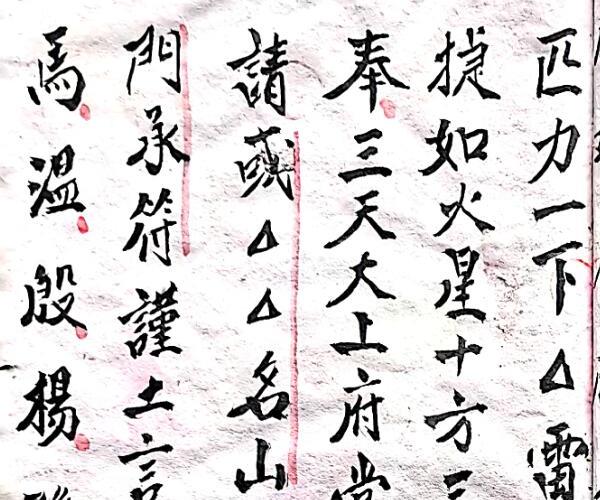 匹力一下△雷
捷如火星十方三
奉三天大上府
請或△△名山
門承符謹土言
馬溫殷楊